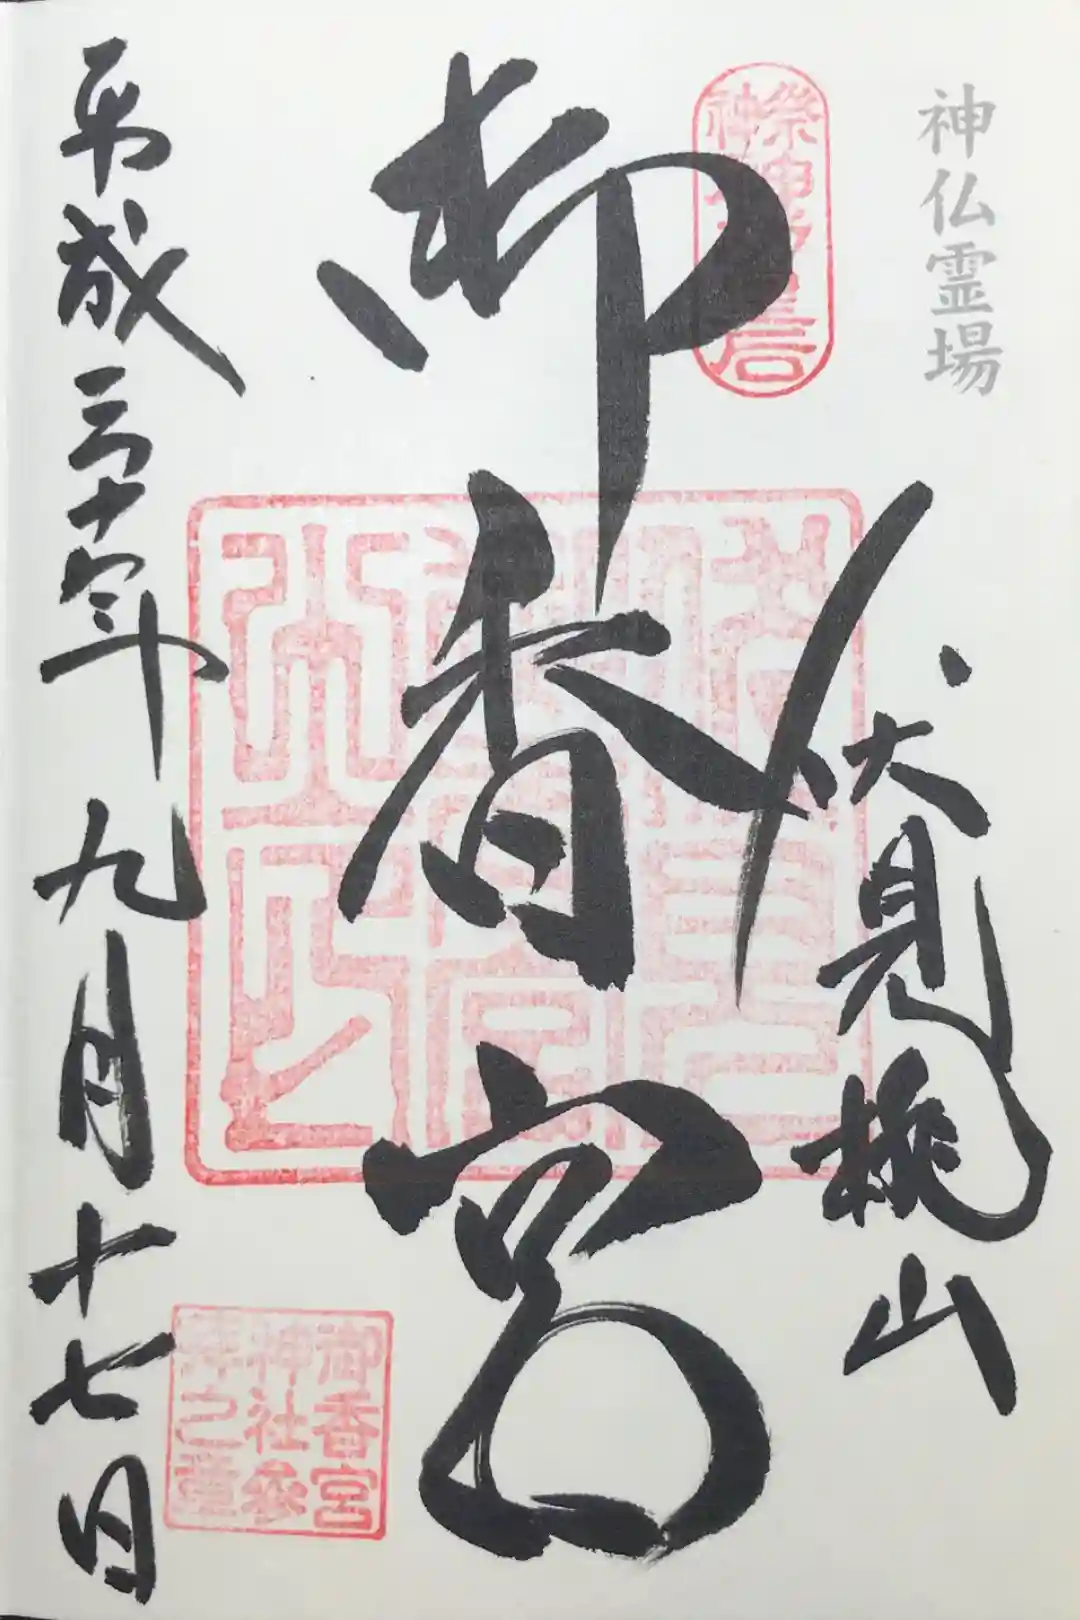 神仏霊場
伏見桃山
御香宮
平成三十年九月十七日
御香宮
神社参
拝之章